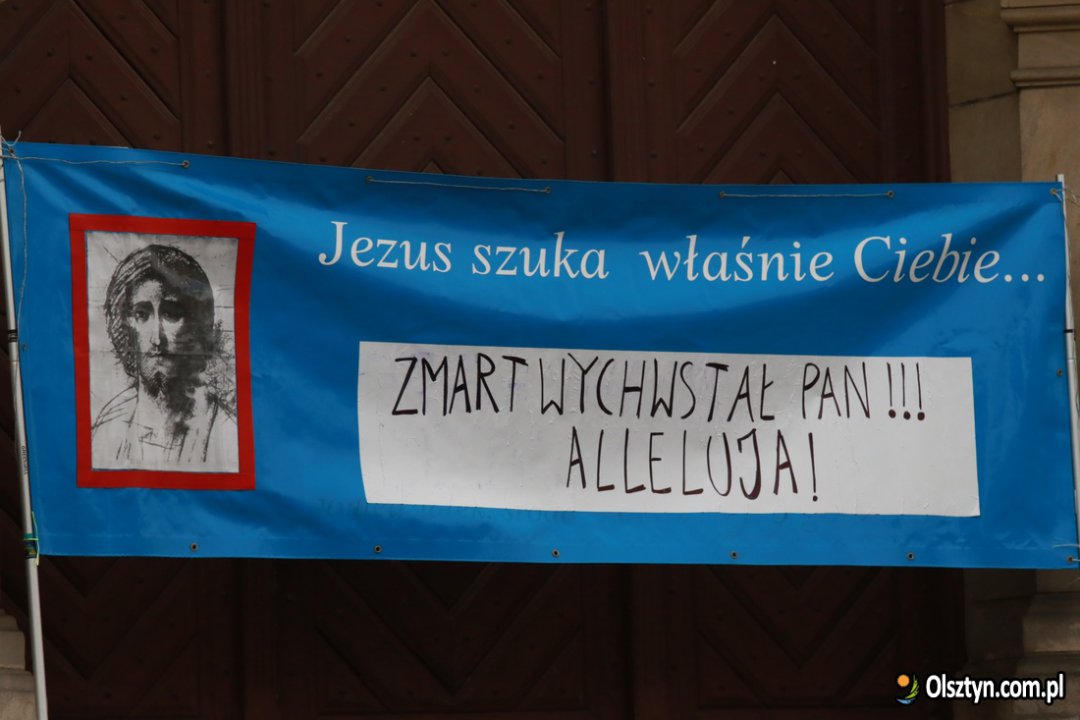 Jezus szuka właśnie Ciebie...
ZMARTWYCHWSTAŁ PAN!!!
ALLELUJA!
Olsztyn.com.pl